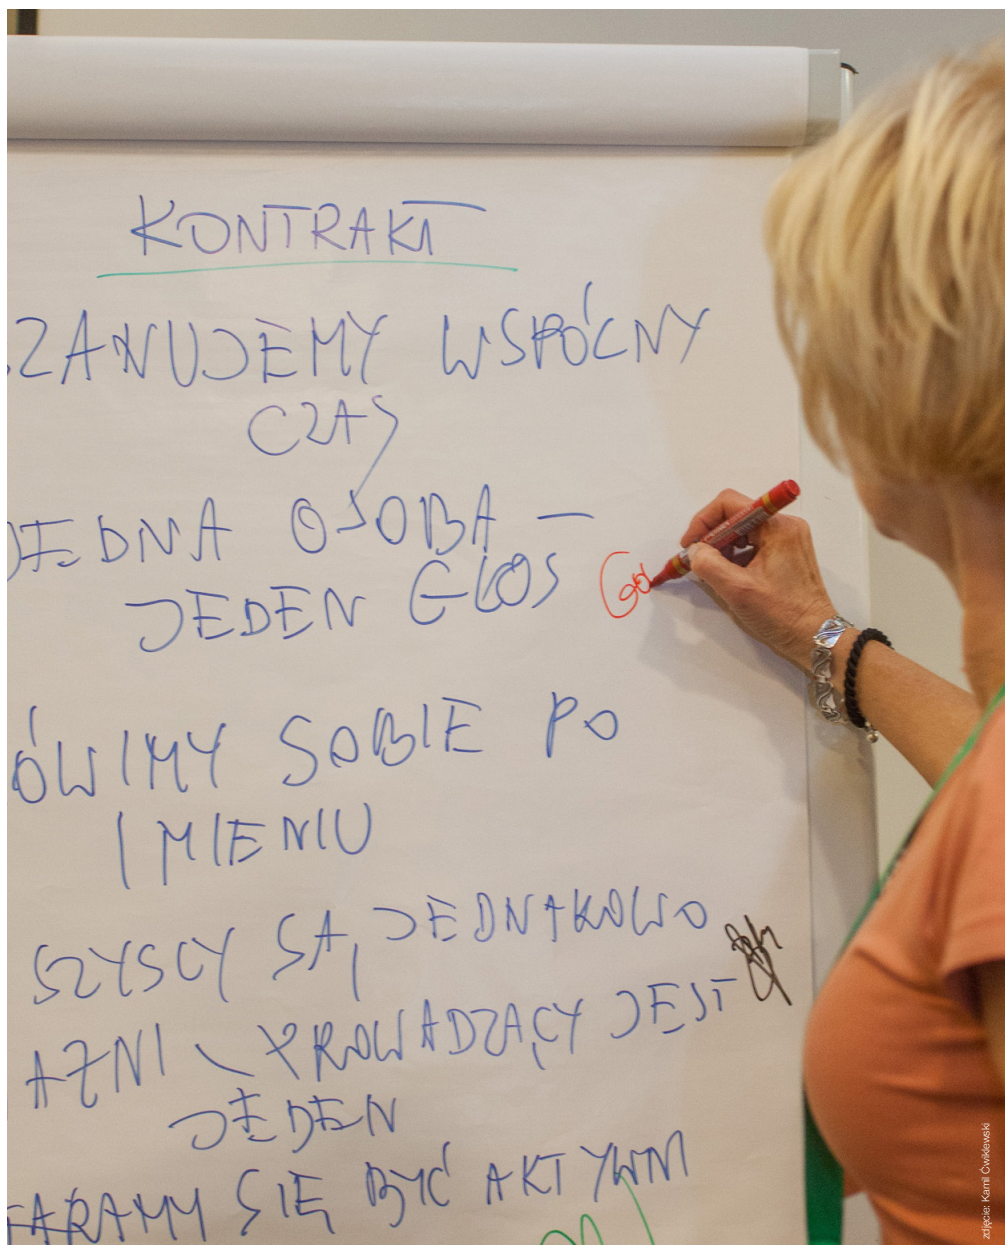 KONTRAKT
SZANUJEMY WSPÓLNY
CZAS
JEDNA OSOBA —
JEDEN GŁOS
ÓWIMY SOBIE PO
IMIENIU
SZYSCY SĄ JEDNAKOWO
AŻNI \ PROWADZĄCY JEST
JEDEN
TARAMY SIĘ BYĆ AKTYWNI
zdjęcie: Kamil Ćwiklewski